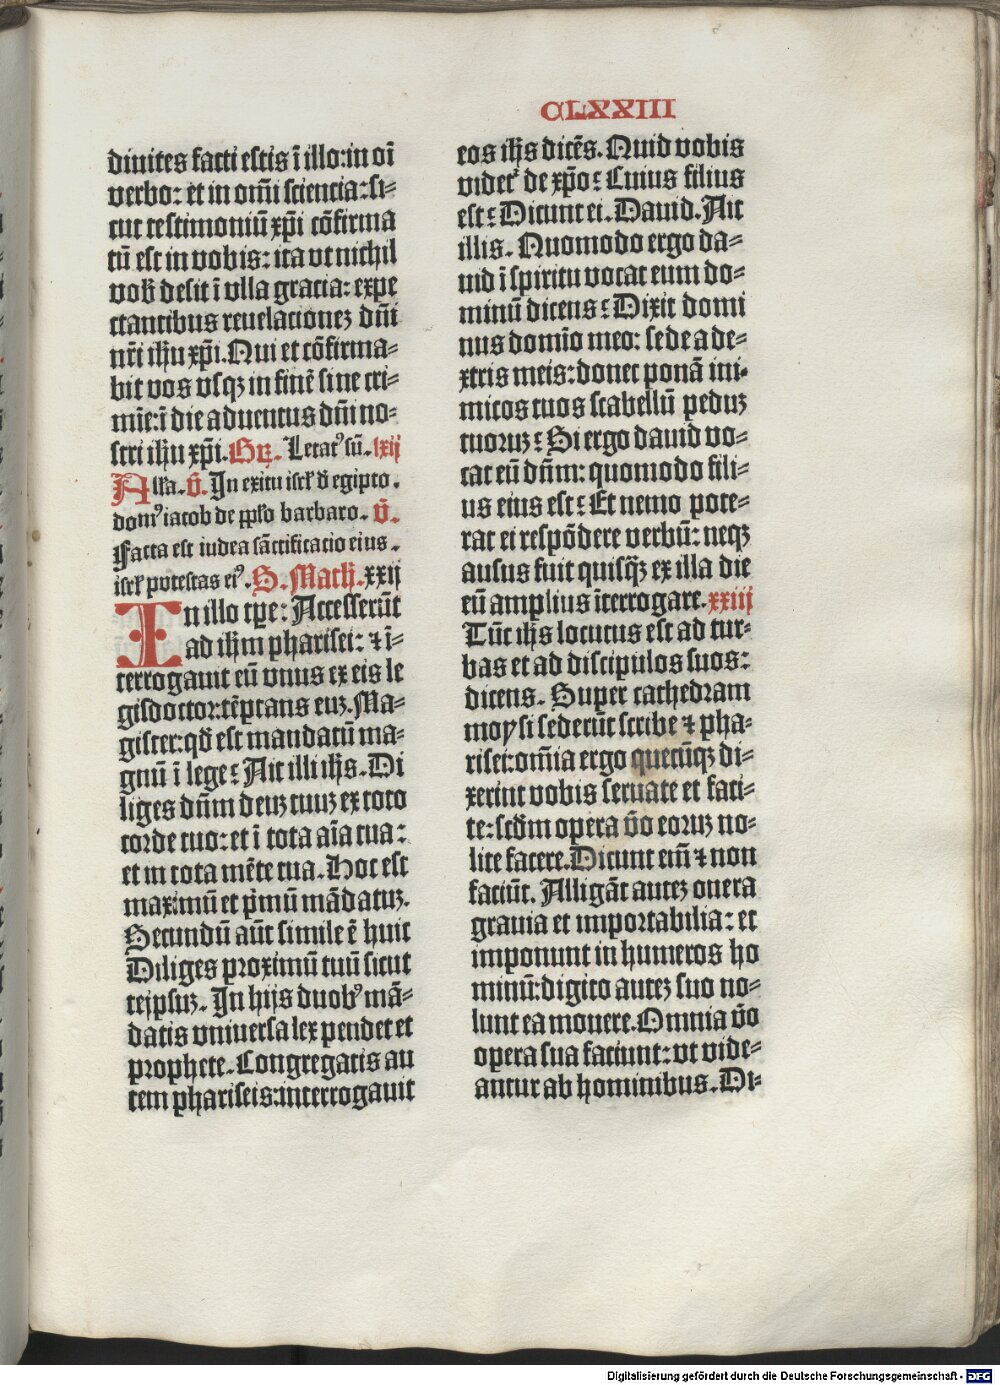 CLXXIII
diuites facti estis ī illo: in oī
verbo: et in om̄i sciencia: si=
cut testimoniū xp̄i cōfirma
tū est in vobis: ita vt nichil
vob̄ desit ī vlla gracia: expe
ctantibus reuelacionez dn̄i
nr̄i ih̄u xp̄i. Qui et cōfirma=
bit vos vsqz in finē sine cri=
mīe: ī die aduentus dn̄i no=
stri ih̄u xp̄i. Gr̄. Letatꝰ sū. lxij
Alla. v̄. In exitu isrl̄ d̄ egipto.
domꝰ iacob de pp̄lo barbaro. v̄.
Facta est iudea sāctificatio eius.
isrl̄ potestas eiꝰ. S. Math̄. xxij
In illo tp̄e: Accesserūt
ad ih̄m pharisei: ⁊ ī=
terrogauit eū vnus ex eis le
gisdoctor: tēptans euz. Ma=
gister: qd̄ est mandatū ma=
gnū ī lege? Ait illi ih̄s. Di
liges dn̄m deuz tuuz ex toto
corde tuo: et ī tota aīa tua:
et in tota mēte tua. Hoc est
maximū et p̄mū mādatuz.
Secundū aūt simile ē huic
Diliges proximū tuū sicut
teipsuz. In hijs duobꝰ mā=
datis vniuersa lex pendet et
prophete. Congregatis au
tem phariseis: interrogauit
eos ih̄s dicēs. Quid vobis
videt᷑ de xp̄o? Cuius filius
est? Dicunt ei. Dauid. Ait
illis. Quomodo ergo da=
uid ī spiritu vocat eum do=
minū dicens? Dixit domi
nus domīo meo: sede a de=
xtris meis: donec ponā ini=
micos tuos scabellū peduz
tuoruz? Si ergo dauid vo=
cat eū dn̄m: quomodo fili=
us eius est? Et nemo pote=
rat ei respōdere verbū: neqz
ausus fuit quisq̄z ex illa die
eū amplius īterrogare. xxiij
Tūc ih̄s locutus est ad tur=
bas et ad discipulos suos:
dicens. Super cathedram
moysi sederūt scribe ⁊ pha=
risei: om̄ia ergo quecūqz di=
xerint vobis seruate et faci=
te: scd̄m opera v̄o eoruz no=
lite facere. Dicunt eīm ⁊ non
faciūt. Alligāt autez onera
grauia et importabilia: et
imponunt in humeros ho
minū: digito autez suo no=
lunt ea mouere. Omnia v̄o
opera sua faciunt: vt vide=
antur ab hominibus. Di=
Digitalisierung gefördert durch die Deutsche Forschungsgemeinschaft - DFG